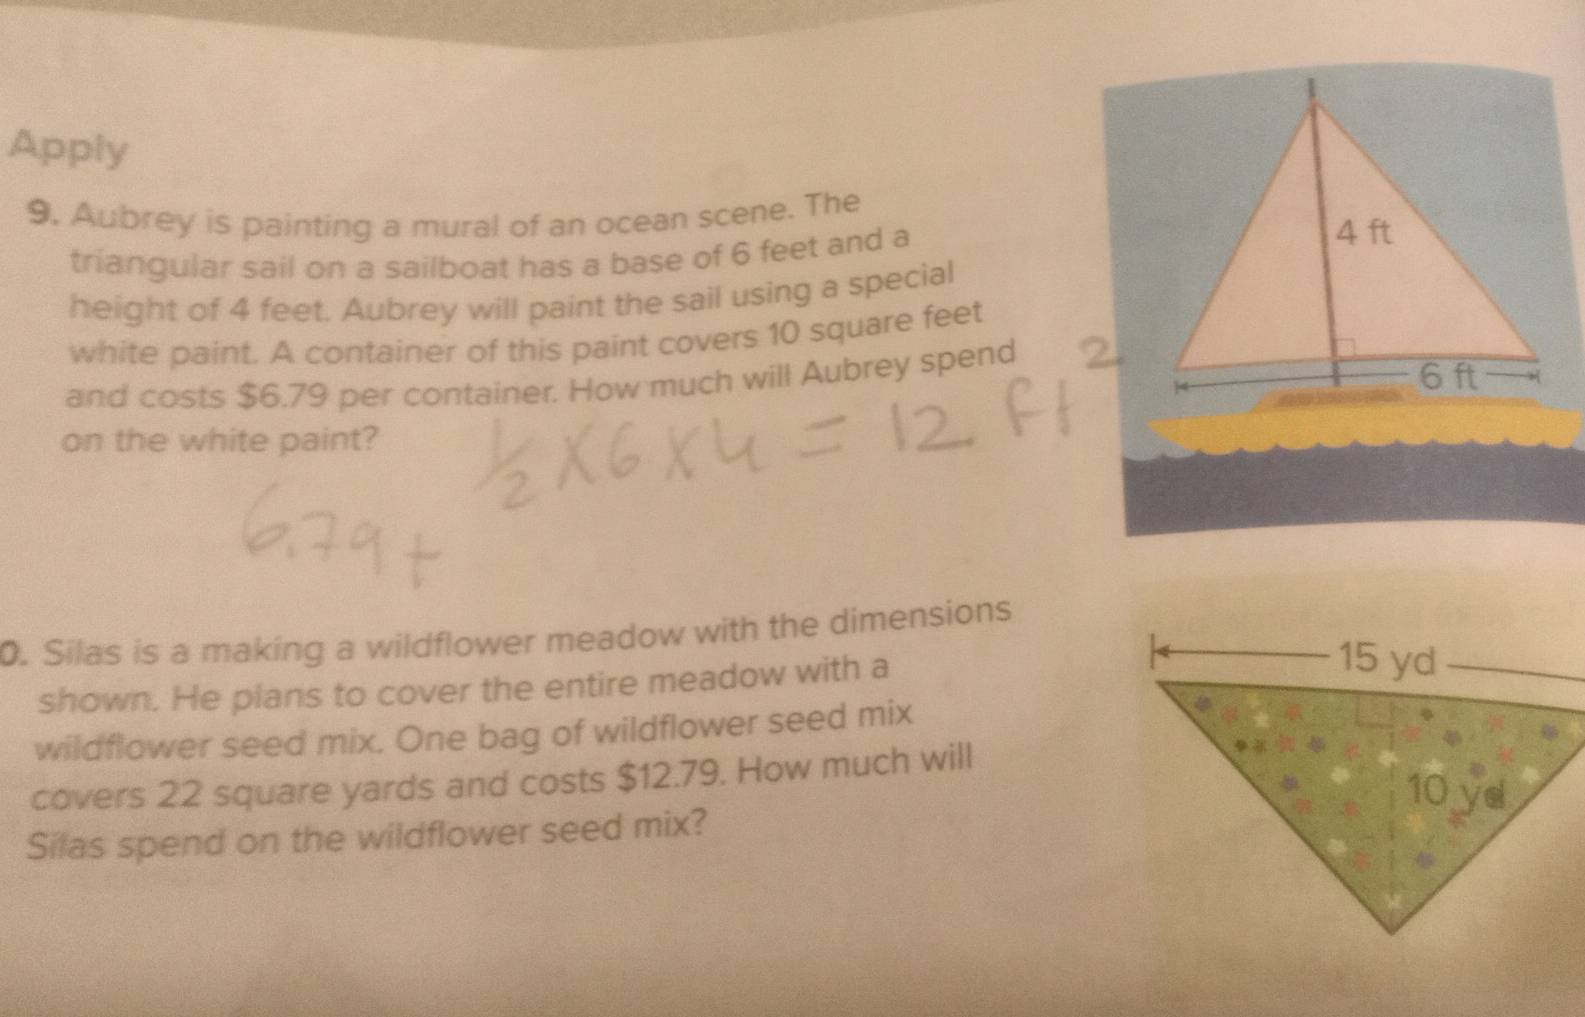 Apply
9. Aubrey is painting a mural of an ocean scene. The
triangular sail on a sailboat has a base of 6 feet and a
height of 4 feet. Aubrey will paint the sail using a special
white paint. A container of this paint covers 10 square feet
and costs $6.79 per container. How much will Aubrey spend
on the white paint?
1/2 × 6 × 4 = 12 ft²
6.79 +
4 ft
6 ft
0. Silas is a making a wildflower meadow with the dimensions
shown. He plans to cover the entire meadow with a
wildflower seed mix. One bag of wildflower seed mix
covers 22 square yards and costs $12.79. How much will
Silas spend on the wildflower seed mix?
15 yd
10 yd